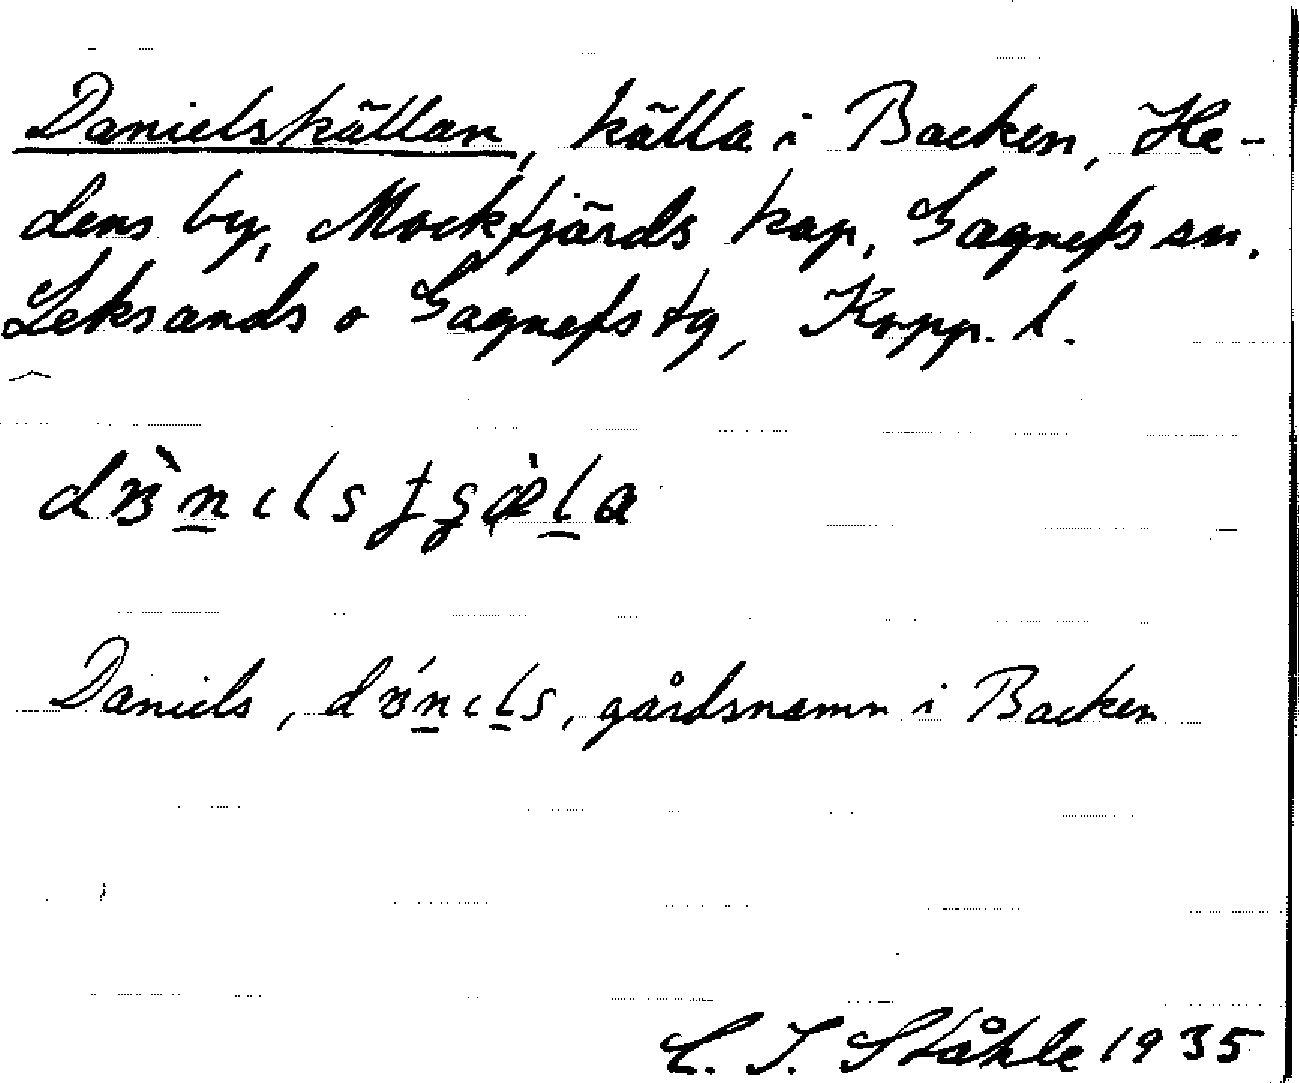 Danielskällan, källa i Backen, He-
dens by, Mockfjärds kap, Gagnefs sn.
Leksands o Gagnefs tg, Kopp. l.
Daniels, gårdsnamn i Backen
C. I. Ståhle 1935